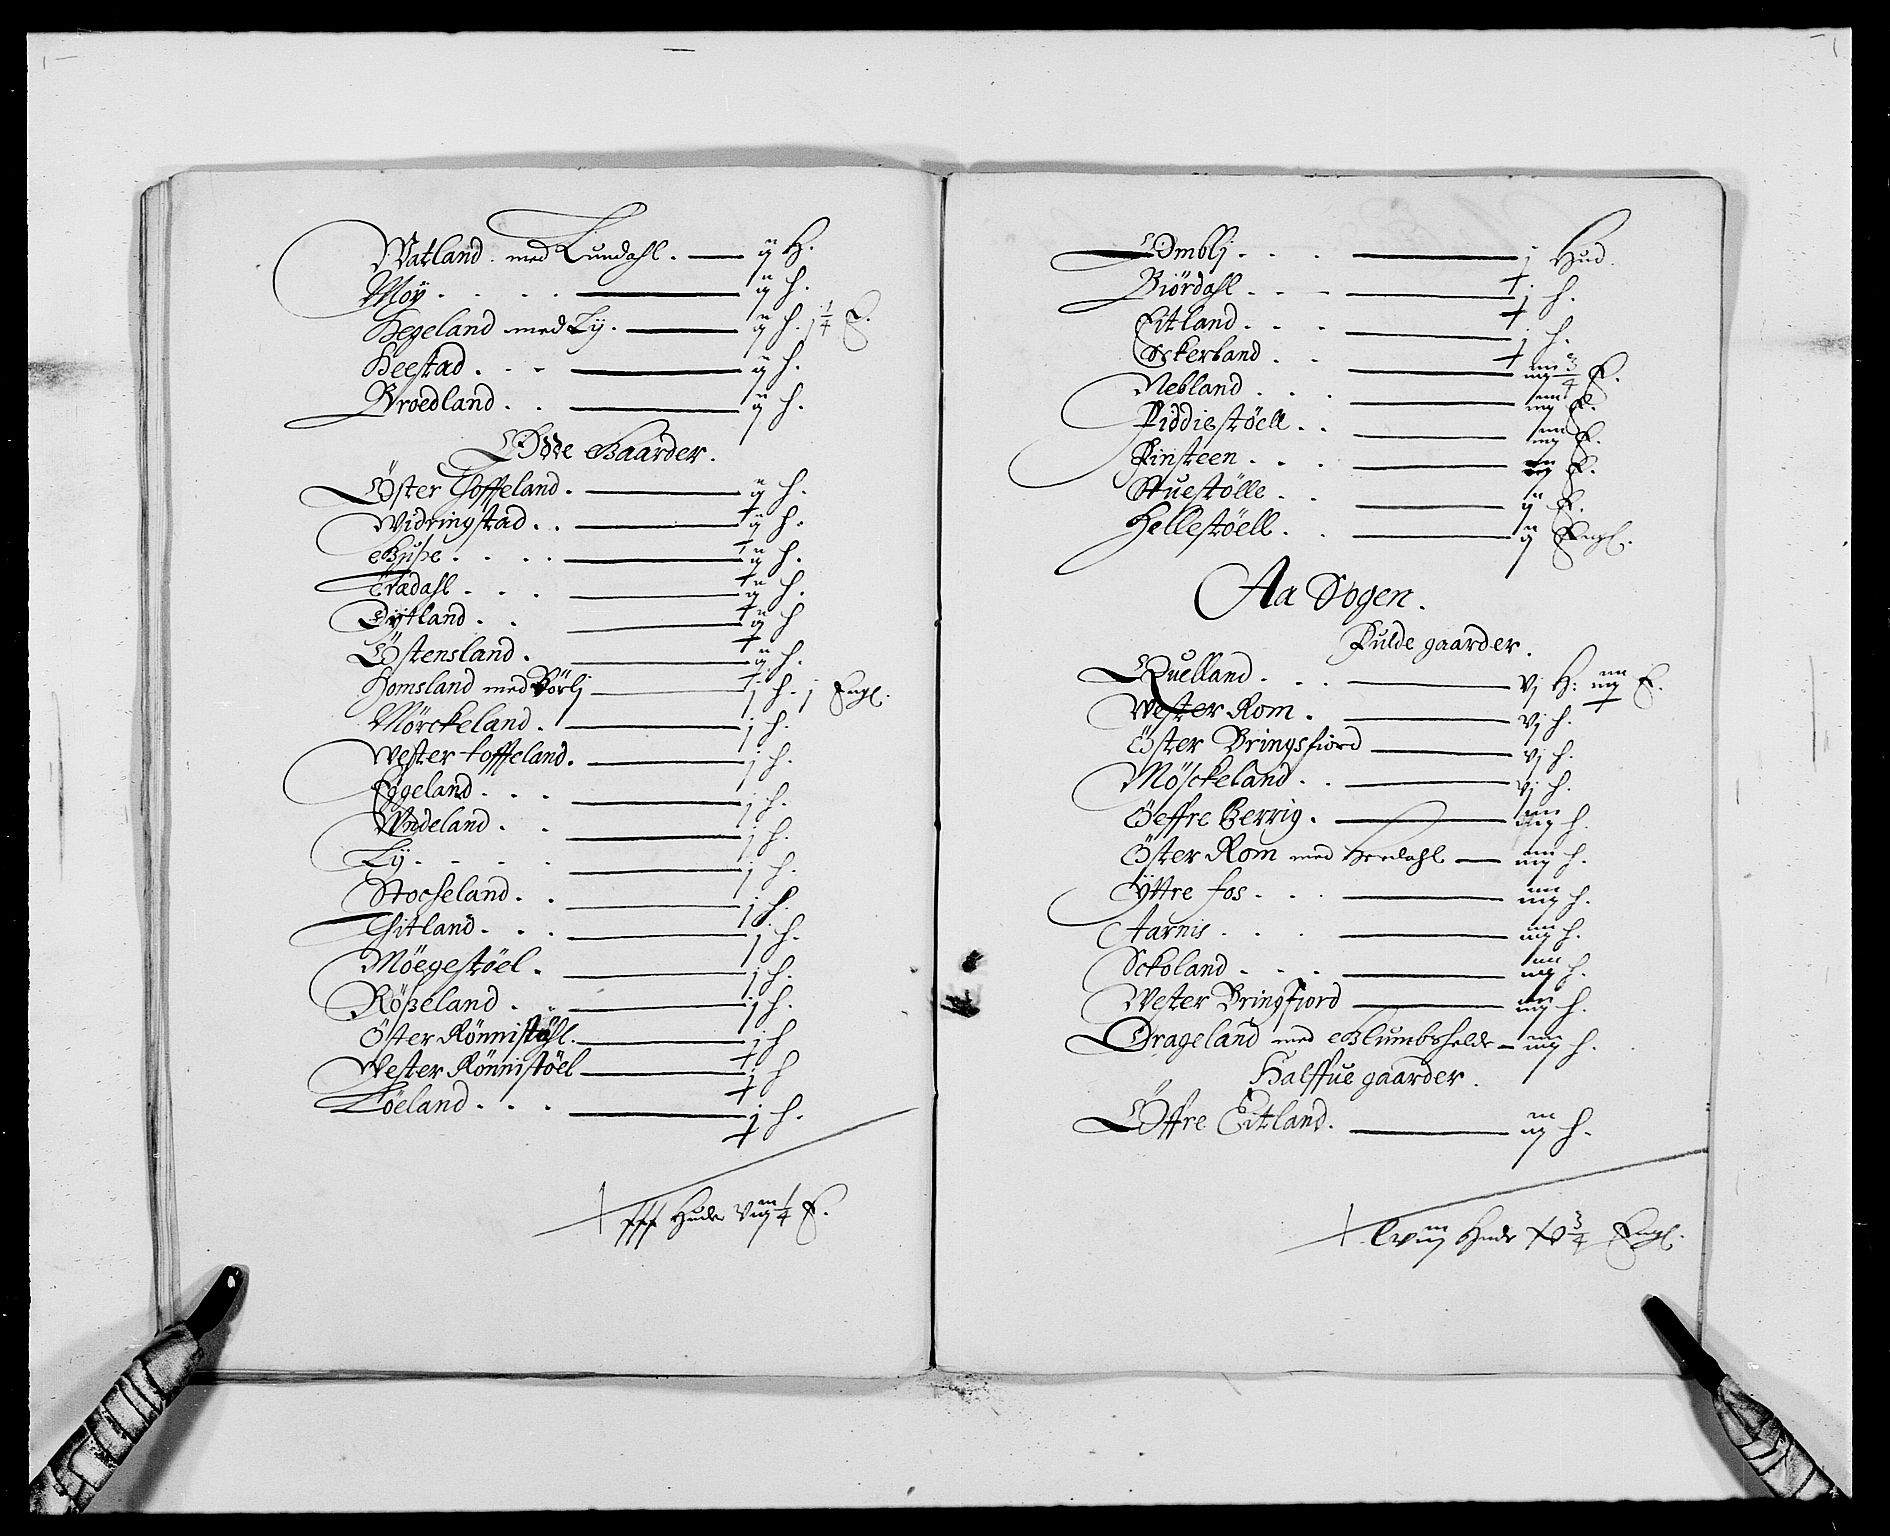 Watland med Lundahl. ij H.
Moy ij h.
Hegeland med Lÿ. ij h. j 1/4 E.
Heestad ij h.
Broedland ij h.
Øde Gaarder.
Öster Toffeland. ij h.
Widringstad ij h.
Guse ij h.
Trædahl ij h.
Dÿtland ij h
Östensland. ij h.
Homsland med Börlj j h. j Engl.
Mörckeland. j h.
Wester toffeland. j h.
Eggeland j h.
Undeland j h.
Lÿ j h.
Stocheland j h.
Thitland j h.
Möegestöel. j h.
Rösseland j h.
Öster Rönnistöhl. j h
Wester Rönnistöel j h
Löeland j h.
fff Huder Viij 1/4 E.
Omblj j Hud.
Biördahl j h.
Eitland j h.
Eckerland iiij 3/4 E.
Nebland iiij E.
Fiddiestöell iiij E.
Finsteen E.
Stuestölle ij E.
Hellestöell ij Engl.
Aa Sogen.
Fulde gaarder.
Quelland Vj H: iiij E.
Wester Rom. Vj h.
Öster Bringsfiord Vj h.
Möskeland Vj h.
Öeffre Berrig. iiij h.
Öster Rom med iiij h.
Ÿttre fos iiij h.
Aarnis iiij h.
Sckoland iiij h.
Wester Bringfiord iiij h.
Drageland med Blumbshelde iiij h.
Halffue gaarder.
Öffre Eitland. iij h.
Lviij Hude XV 3/4 Engl.